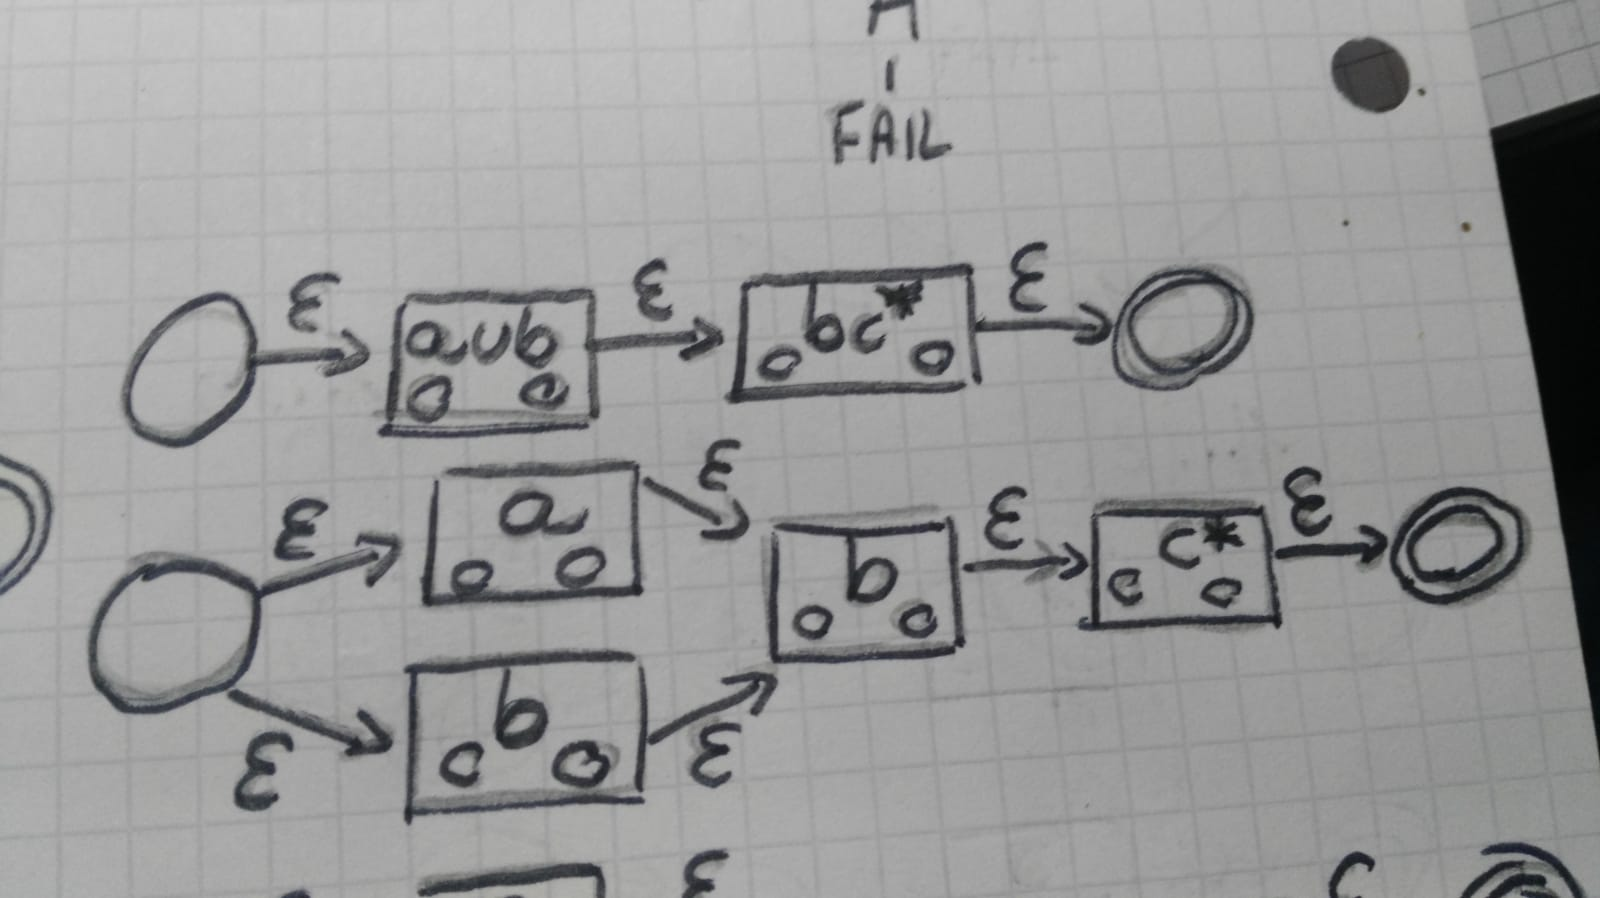 FAIL
ε a∪b ε bc* ε
ε a ε b ε c* ε
ε b ε
ε c